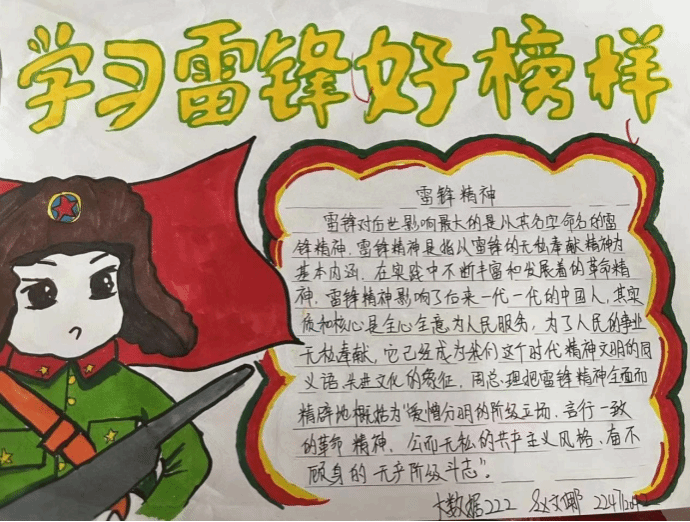 学习雷锋好榜样
雷锋精神
雷锋对后世影响最大的是从其名字命名的雷
锋精神。雷锋精神是指从雷锋的无私奉献精神为
基本内涵，在实践中不断丰富和发展着的革命精
神，雷锋精神影响了后来一代一代的中国人，其实
质和核心是全心全意为人民服务，为了人民的事业
无私奉献。它已经成为我们这个时代精神文明的同
义语、先进文化的象征。周总理把雷锋精神全面而
精辟地概括为“爱憎分明的阶级立场、言行一致
的革命精神、公而无私的共产主义风格、奋不
顾身的无产阶级斗志”。
大数据222